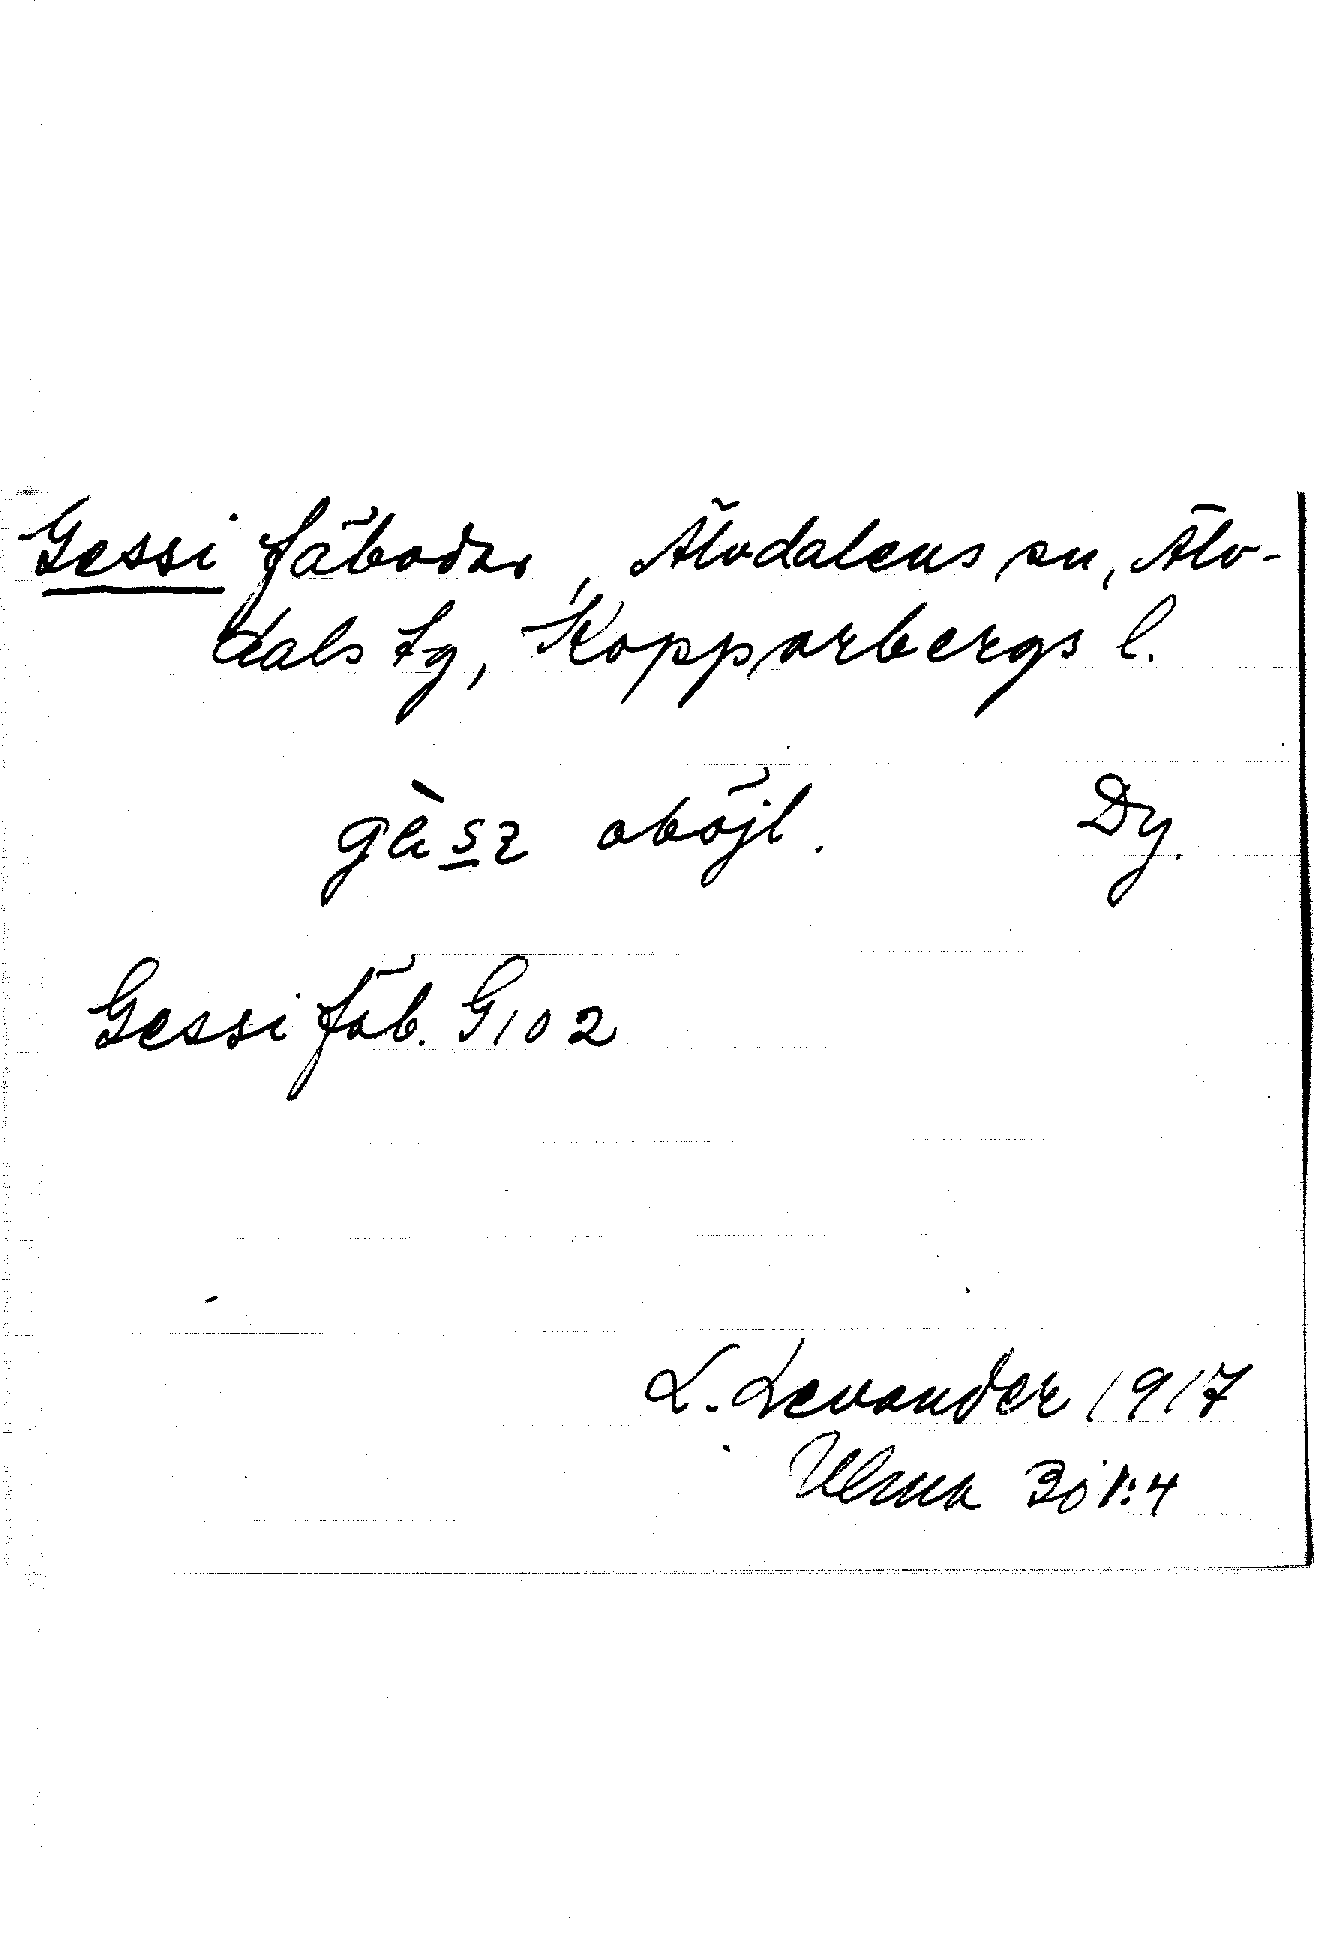 Gessi fäbodar, Älvdalens sn, Älv-
dals tg, Kopparbergs l.
oböjl. Dy.
Gessi fäb. G102
L. Levander 1917
Ulma 301:4